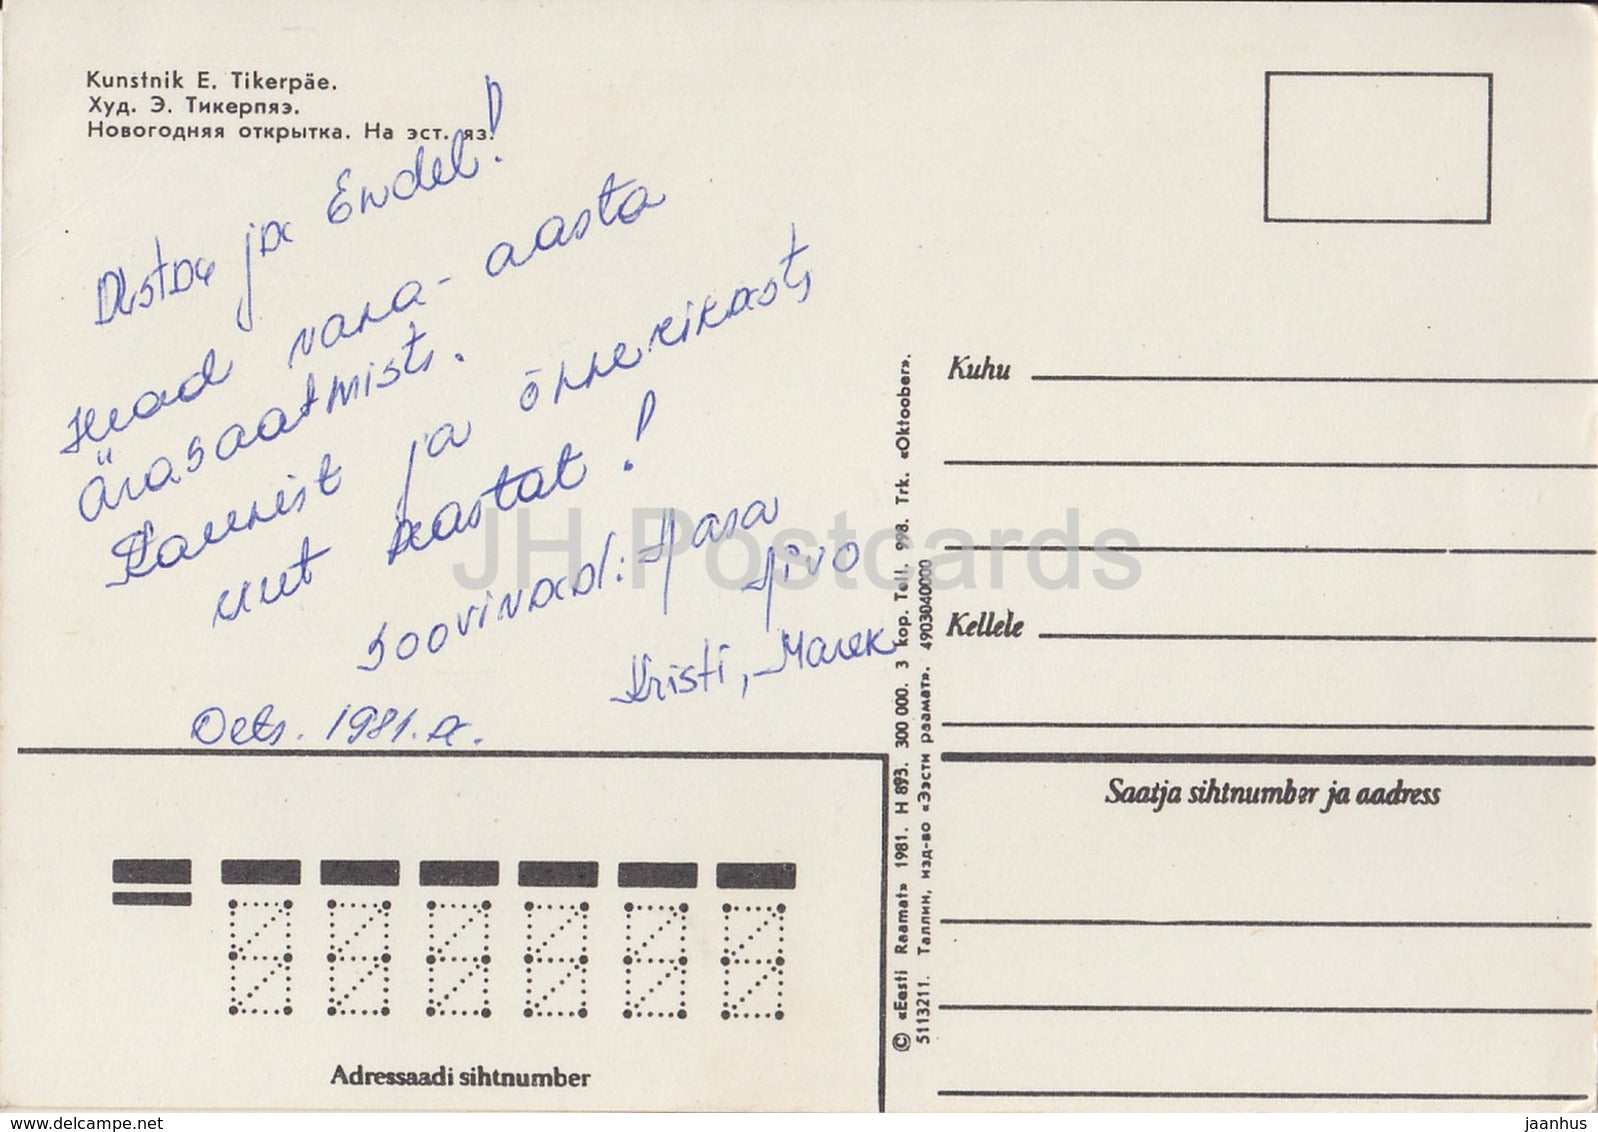 Kunstnik E. Tikerpäe.
Худ. Э. Тикерпяэ.
Новогодняя открытка. На эст. яз.
ja Endel!
Head vana-aasta
ärasaatmist.
Kaunist ja õnnerikast
uut aastat!
soovinad: Aasa
Aivo
Kristi, Marek
Dets. 1981.a.
Adressaadi sihtnumber
© «Eesti Raamat» 1981. H 893. 300 000. 3 kop. Tell. 998. Trk. «Oktoober».
5113211. Таллин, изд-во «Ээсти раамат». 4903040000
Kuhu
Kellele
Saatja sihtnumber ja aadress
JH Postcards
delcampe.net
jaanhus